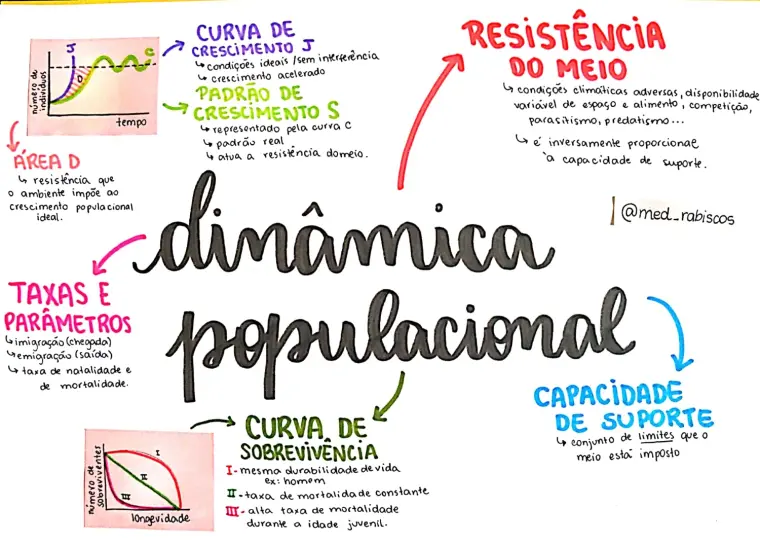 CURVA DE
CRESCIMENTO J
↳ condições ideais /sem interferência
↳ crescimento acelerado
PADRÃO DE
CRESCIMENTO S
↳ representado pela curva C
↳ padrão real
↳ atua a resistência do meio.
J
C
D
número de
indivíduos
tempo
ÁREA D
↳ resistência que
o ambiente impõe ao
crescimento populacional
ideal.
RESISTÊNCIA
DO MEIO
↳ condições climáticas adversas, disponibilidade
variável de espaço e alimento, competição,
parasitismo, predatismo...
↳ é inversamente proporcional
à capacidade de suporte.
@med_rabiscos
dinâmica
populacional
TAXAS E
PARÂMETROS
↳ imigração (chegada)
↳ emigração (saída)
↳ taxa de natalidade e
de mortalidade.
CAPACIDADE
DE SUPORTE
↳ conjunto de limites que o
meio está imposto
CURVA DE
SOBREVIVÊNCIA
I - mesma durabilidade de vida
ex: homem
II - taxa de mortalidade constante
III - alta taxa de mortalidade
durante a idade juvenil.
número de
sobreviventes
I
II
III
longevidade